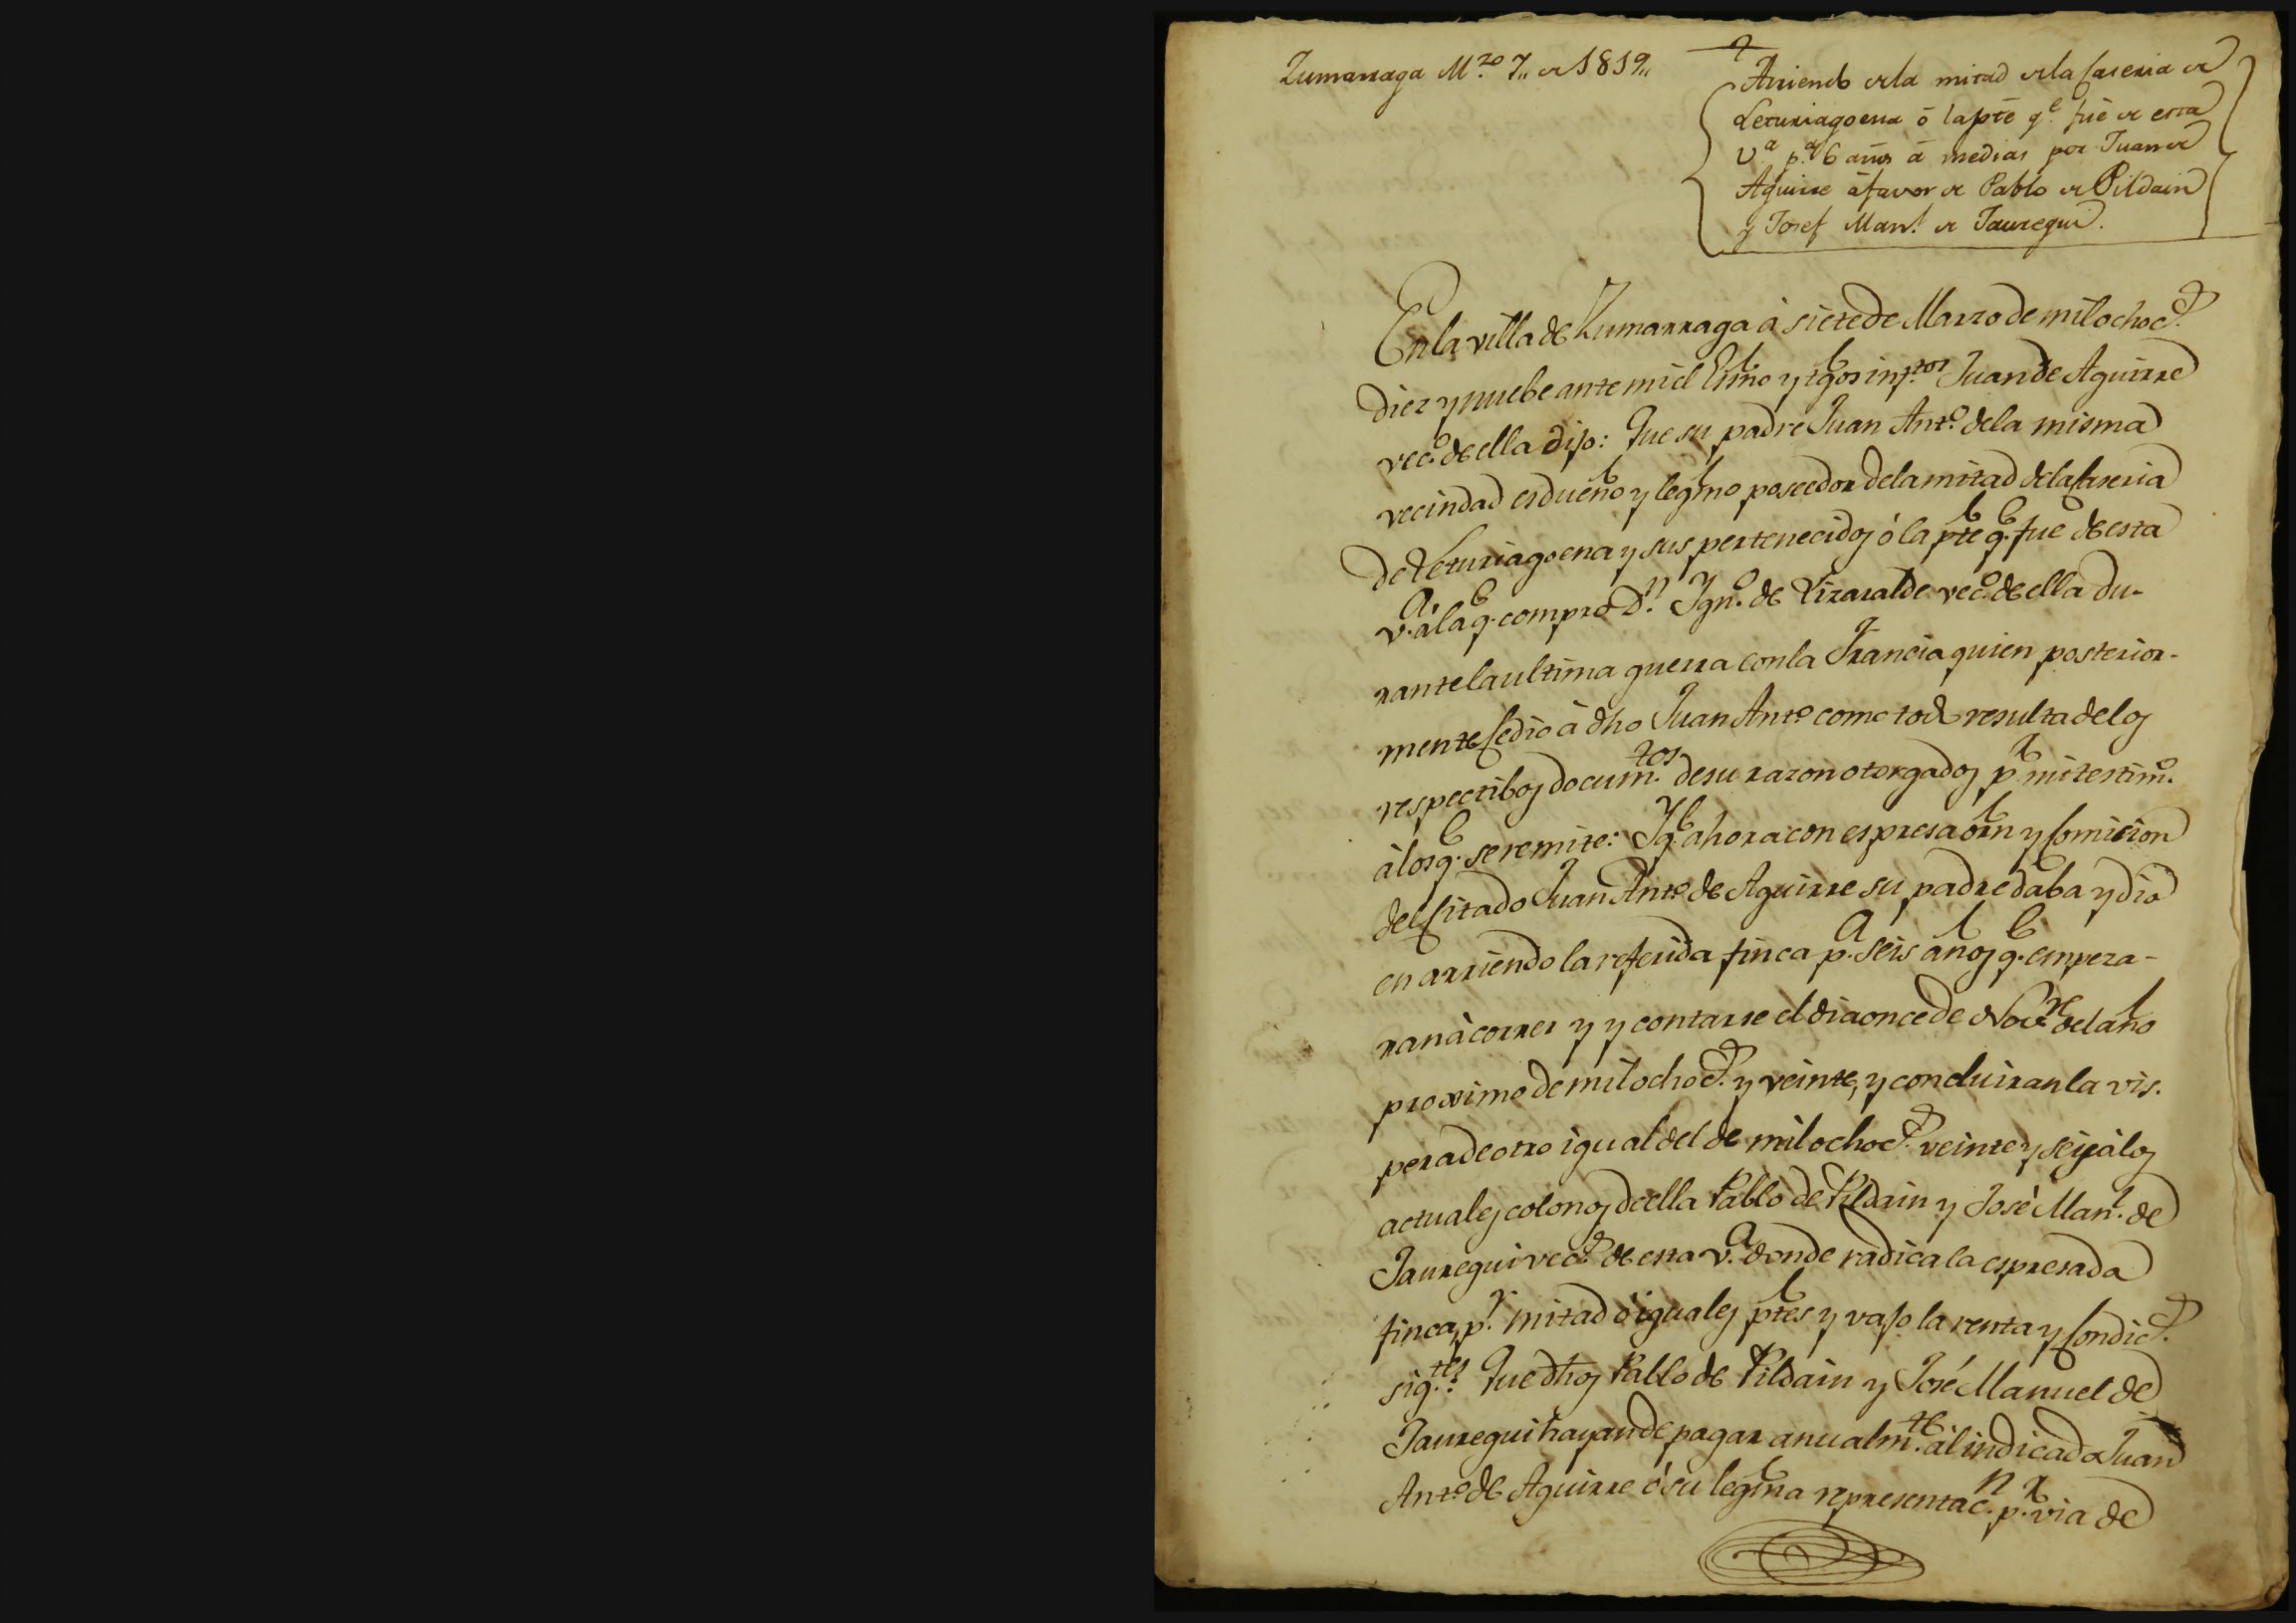 Zumarraga M.zo 7,, de 1819,,
Arriendo de la mitad de la Caseria de
Leturiagoena ó la pte q.e fué de esta
V.a p.a 6 años á medias por Juan de
Aguirre á favor de Pablo de Pildain
y Josef Man.l de Jauregui.
En la villa de Zumarraga à siete de Marzo de mil ochoc.s
diez y nuebe ante mi el Esno y tgos inf.tos Juan de Aguirre
vec.o de ella dijo: Que su padre Juan Ant.o de la misma
vecindad es dueño y legmo poseedor de la mitad de la Caseria
de Leturiagoena y sus pertenecidos ó la pte q.e fue de esta
v.a á la q.e compro D.n Ygn.o de Lizaralde vec.o de ella du-
rante la ultima guerra con la Francia quien posterior-
mente Cedio à dho Juan Ant.o como todo resulta de los
respectibos docum.tos de su razon otorgados p.r mi testim.o
à los q.e se remite: Y q.e ahora con espresa orn y Comision
del Citado Juan Ant.o de Aguirre su padre daba y dio
en arriendo la referida finca p.a seis años q.e empeza-
ran à correr y y contarse el dia once de Nov.re del año
proximo de mil ochoc.s y veinte, y concluiran la vis-
pera de otro igual del de mil ochoc.s veinte y seis à los
actuales colonos de ella Pablo de Pildain y José Man.l de
Jauregui vec.s de esta v.a donde radica la espresada
finca, p.r mitad ó iguales ptes y vajo la renta y Condic.s
sig.tes: Que dhos Pablo de Pildain y José Manuel de
Jauregui hayan de pagar anualm.te al indicado Juan
Ant.o de Aguirre ó su legma representac.n p.r via de